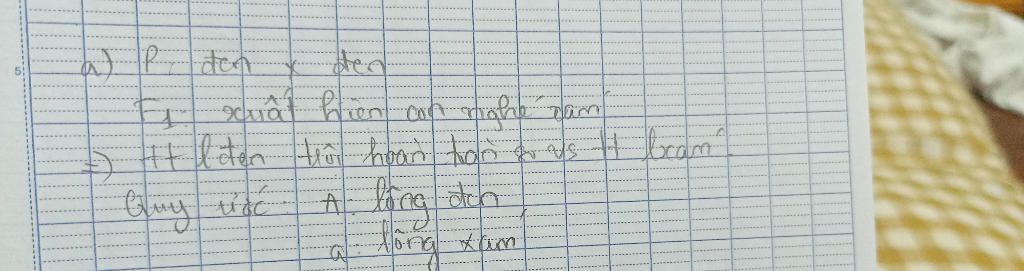 5
a) P: đen x đen
F1: xuất hiện con nghé xám
=) tt lđen trội hoàn toàn so vs tt lxám
Quy ước: A: lông đen
a: lông xám